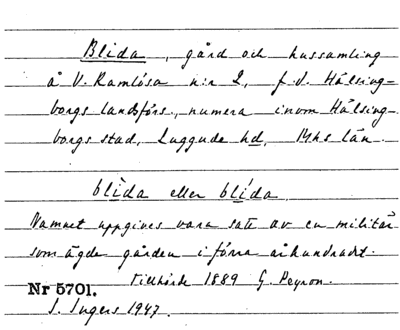 Blida, gård och hussamling
å V. Ramlösa n:r 2, f.d. Hälsing-
borgs landsförs., numera inom Hälsing-
borgs stad, Luggude hd, Mhs län.
blìda eller blída.
Namnet uppgives vara satt av en militär
som ägde gården i förra århundradet.
Tillhörde 1889 G. Peyron.
Nr 5701.
I. Ingers 1947.